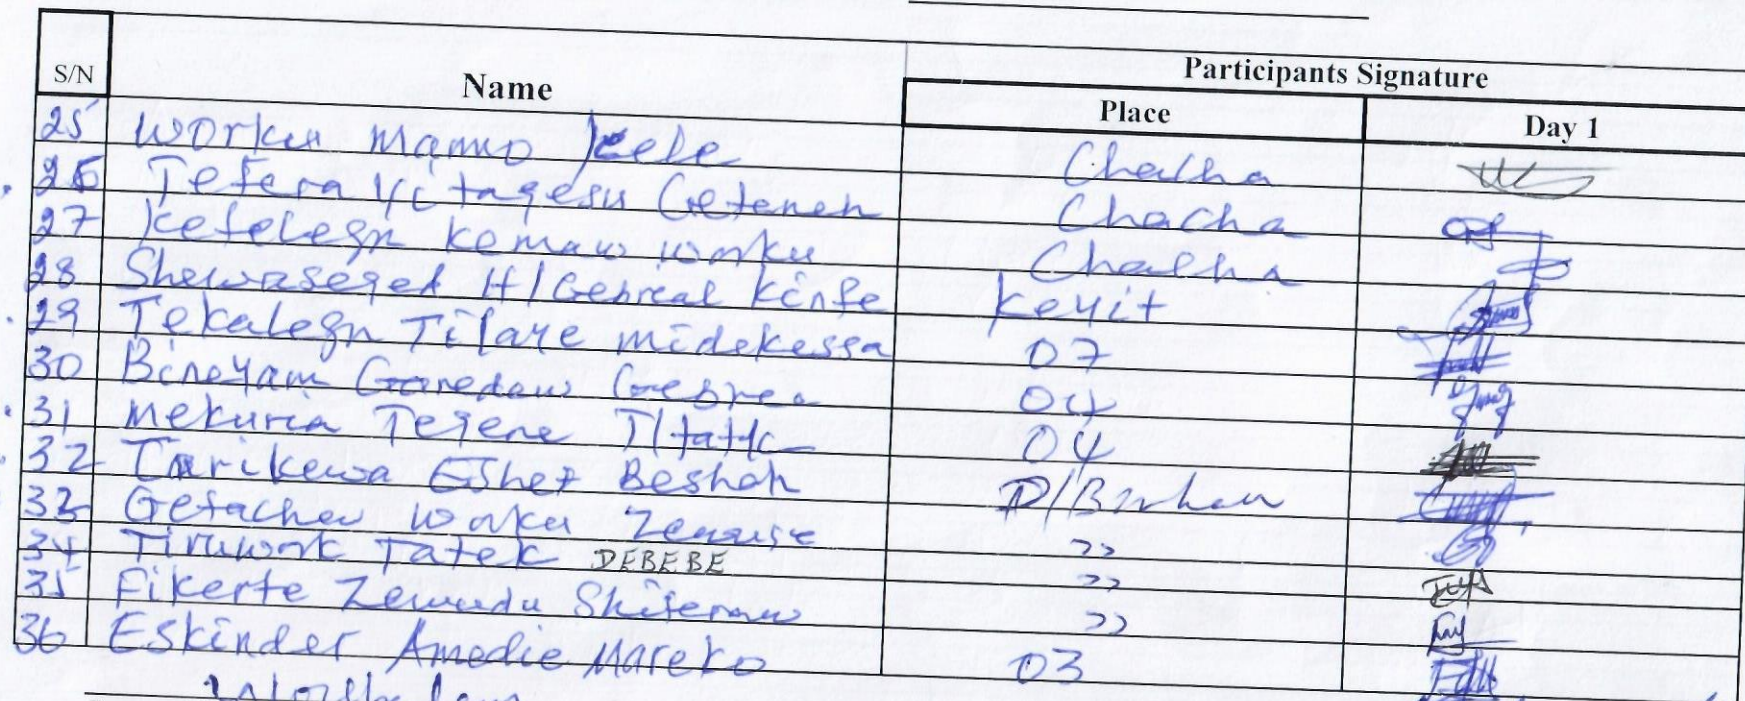 Participants Signature
S/N Name Place Day 1
25 Worku Mamo Kebe Chacha
26 Tefera Y/tagesu Geteneh Chacha
27 Ketelegn Kemaw Worku Chacha
28 Shewaseged H/Gebreal Kinfe Keyit
29 Tekalegn Tilaye midekessa 07
30 Bineyam Genedew Gebre 04
31 Mekuria Tegene 04
32 Tarikewa Eshet Beshah D/Birhan
33 Getachew Worku ››
34 Tiruwork Tatek DEBEBE ››
35 Fikerte Zewudu Shiferaw ››
36 Eskinder Amedie Mareko 03